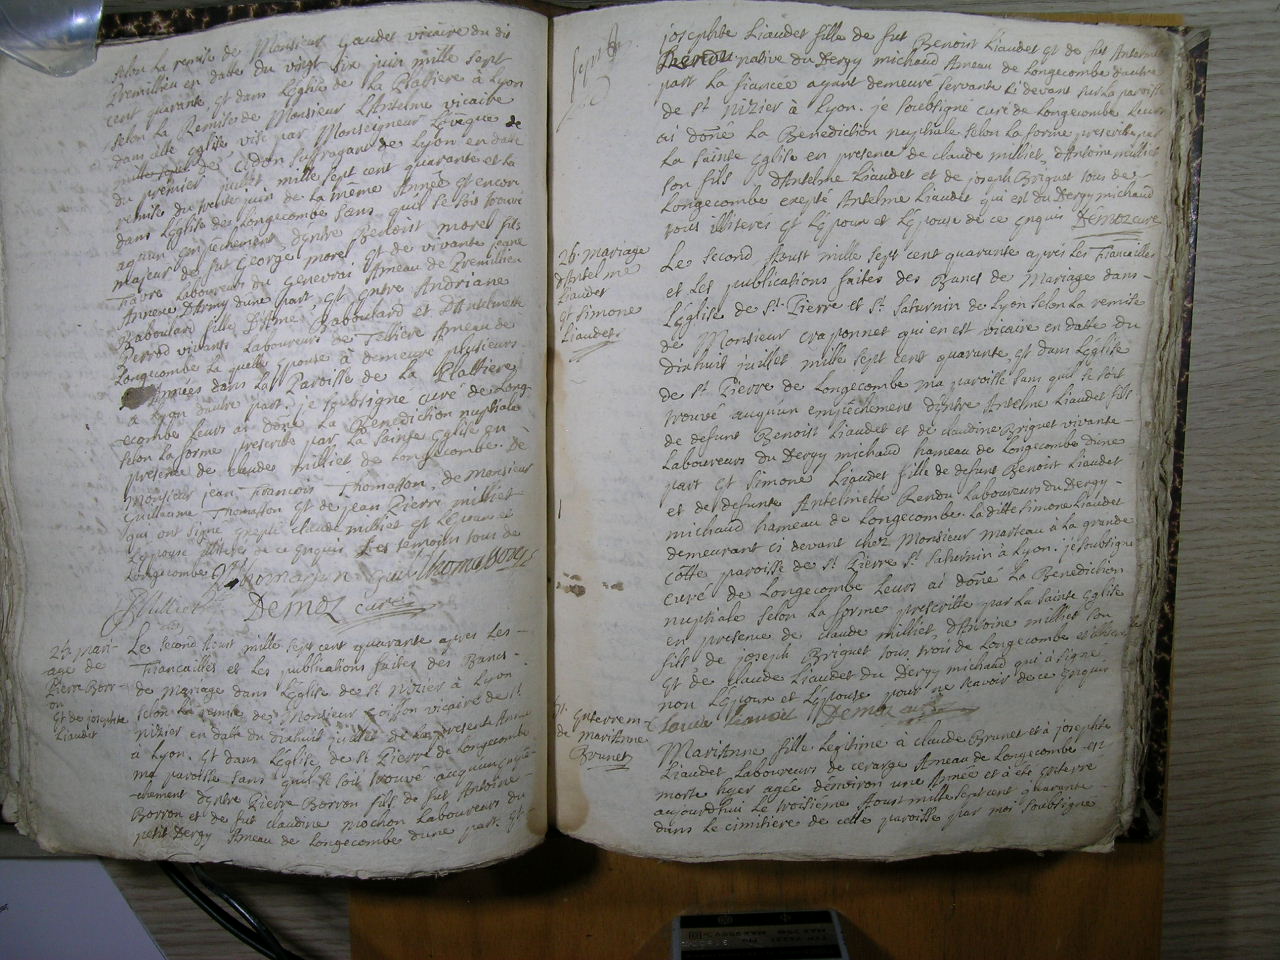 selon La remise de Monsieur Gaudet vicaire du dit
Premillieu en datte du vingt six juin mille sept
cent quarante et dans L'Eglise de La Plattiere à Lyon
selon La Remise de Monsieur L'Anselme vicaire
dans cette Eglise visé par Monseigneur L'évêque de
du premier juillet mille sept cent quarante et La
remise du trente juin de La même Année et encor
dans L'Eglise de Longecombe sans quil se soit trouvé
auqun empêchement d'Entre Benoist morel fils
majeur de fut George morel et de vivante jeane
Favre Laboureurs du Genevrai Ameau de Premillieu
Annexe D'Army dune part et Entre Andriane
Baboulard fille D'Ame Baboulard et D'Antelmette
Perrod vivants Laboureurs de Ameau de
Longecombe La quelle Epouse à demeuré plusieurs
Années dans La Paroisse de La Plattiere
à Lyon d'autre part. je soubsigne curé de Long-
ecombe Leurs ai doné La Benediction nuptiale
selon La forme prescritte par La Sainte Eglise en
presence de claude milliet de Longecombe. De
Monsieur jean François Thomasson, de Monsieur
Guillaume Thomasson et de jean Pierre milliet
qui ont signé Exepté claude milliet et L'Epoux et
L'Epouse illiteres de ce Enquis Les temoins tous de
Longecombe Thomasson
Milliet Demoz curé
25. mari-
age de
Pierre Borr-
on
et de josephte
Liaudet
Le second Aoust mille sept cent quarante apres Les
Fiancailles et Les publications faites des Bancs
de Mariage dans L'Eglise de St Nizier à Lyon
selon La remise de Monsieur vicaire de St
Nizier en datte du dixhuit juillet de La presente Année
à Lyon. et dans L'Eglise de St Pierre de Longecombe
ma paroisse sans quil se soit trouvé auqun empê-
chement d'Entre Pierre Borron fils de fut Antoine
Borron et de fut claudine mochon Laboureurs du
petit Dergy Ameau de Longecombe dune part. et
josephte Liaudet fille de fut Benoist Liaudet et de fut Antelmette
native du Dergy michaud Ameau de Longecombe d'autre
part La fiancée ayant demeuré servante ci devant sur La paroisse
de St Nizier à Lyon. je soubsigné curé de Longecombe Leurs
ai doné La Benediction nuptiale selon La forme prescrite par
La Sainte Eglise en presence de claude milliet, d'Antoine milliet
son fils d'Antelme Liaudet et de joseph Briquet tous de
Longecombe exepté Antelme Liaudet qui est du Dergy michaud
tous illiterés et L'Epoux et L'Epouse de ce Enquis Demoz curé
26. mariage
d'Antelme
Liaudet
et simone
Liaudet
Le second Aoust mille sept cent quarante apres Les Fiancailles
et Les publications faites des Bancs de Mariage dans
L'Eglise de St Pierre et St Saturnin de Lyon selon La remise
de Monsieur Craponnet qui en est vicaire en datte du
dixhuit juillet mille sept cent quarante, et dans L'Eglise
de St Pierre de Longecombe ma paroisse sans quil se soit
trouvé auqu'un empêchement d'Entre Antelme Liaudet fils
de defunt Benoist Liaudet et de claudine Briquet vivante
Laboureurs du Dergy michaud hameau de Longecombe dune
part et Simone Liaudet fille de defunt Benoist Liaudet
et de defunte Antelmette Rendu Laboureurs du Dergy
michaud hameau de Longecombe. La ditte simone Liaudet
demeurant ci devant chez Monsieur marteau à La grande
côtte paroisse de St Pierre St Saturnin à Lyon. je soubsigné
curé de Longecombe Leurs ai doné La Benediction
nuptiale selon La forme prescritte par La Sainte Eglise
en presence de claude milliet, d'Antoine milliet son
fils de joseph Briquet tous trois de Longecombe et illiterés
et de claude Liaudet du Dergy michaud qui à signé
non L'Epoux et L'Epouse pour ne sçavoir de ce Enquis
Claude Liaudet Demoz curé
Enterrem.
de mariAnne
Brunet
MariAnne fille Legitime à claude Brunet et à josephte
Liaudet Laboureurs de cerarge Ameau de Longecombe est
morte hyer agée d'environ une Année et à été Enterré
aujourd'hui Le troisieme Aoust mille sept cent quarante
dans Le cimitiere de cette paroisse par moi soubsigné